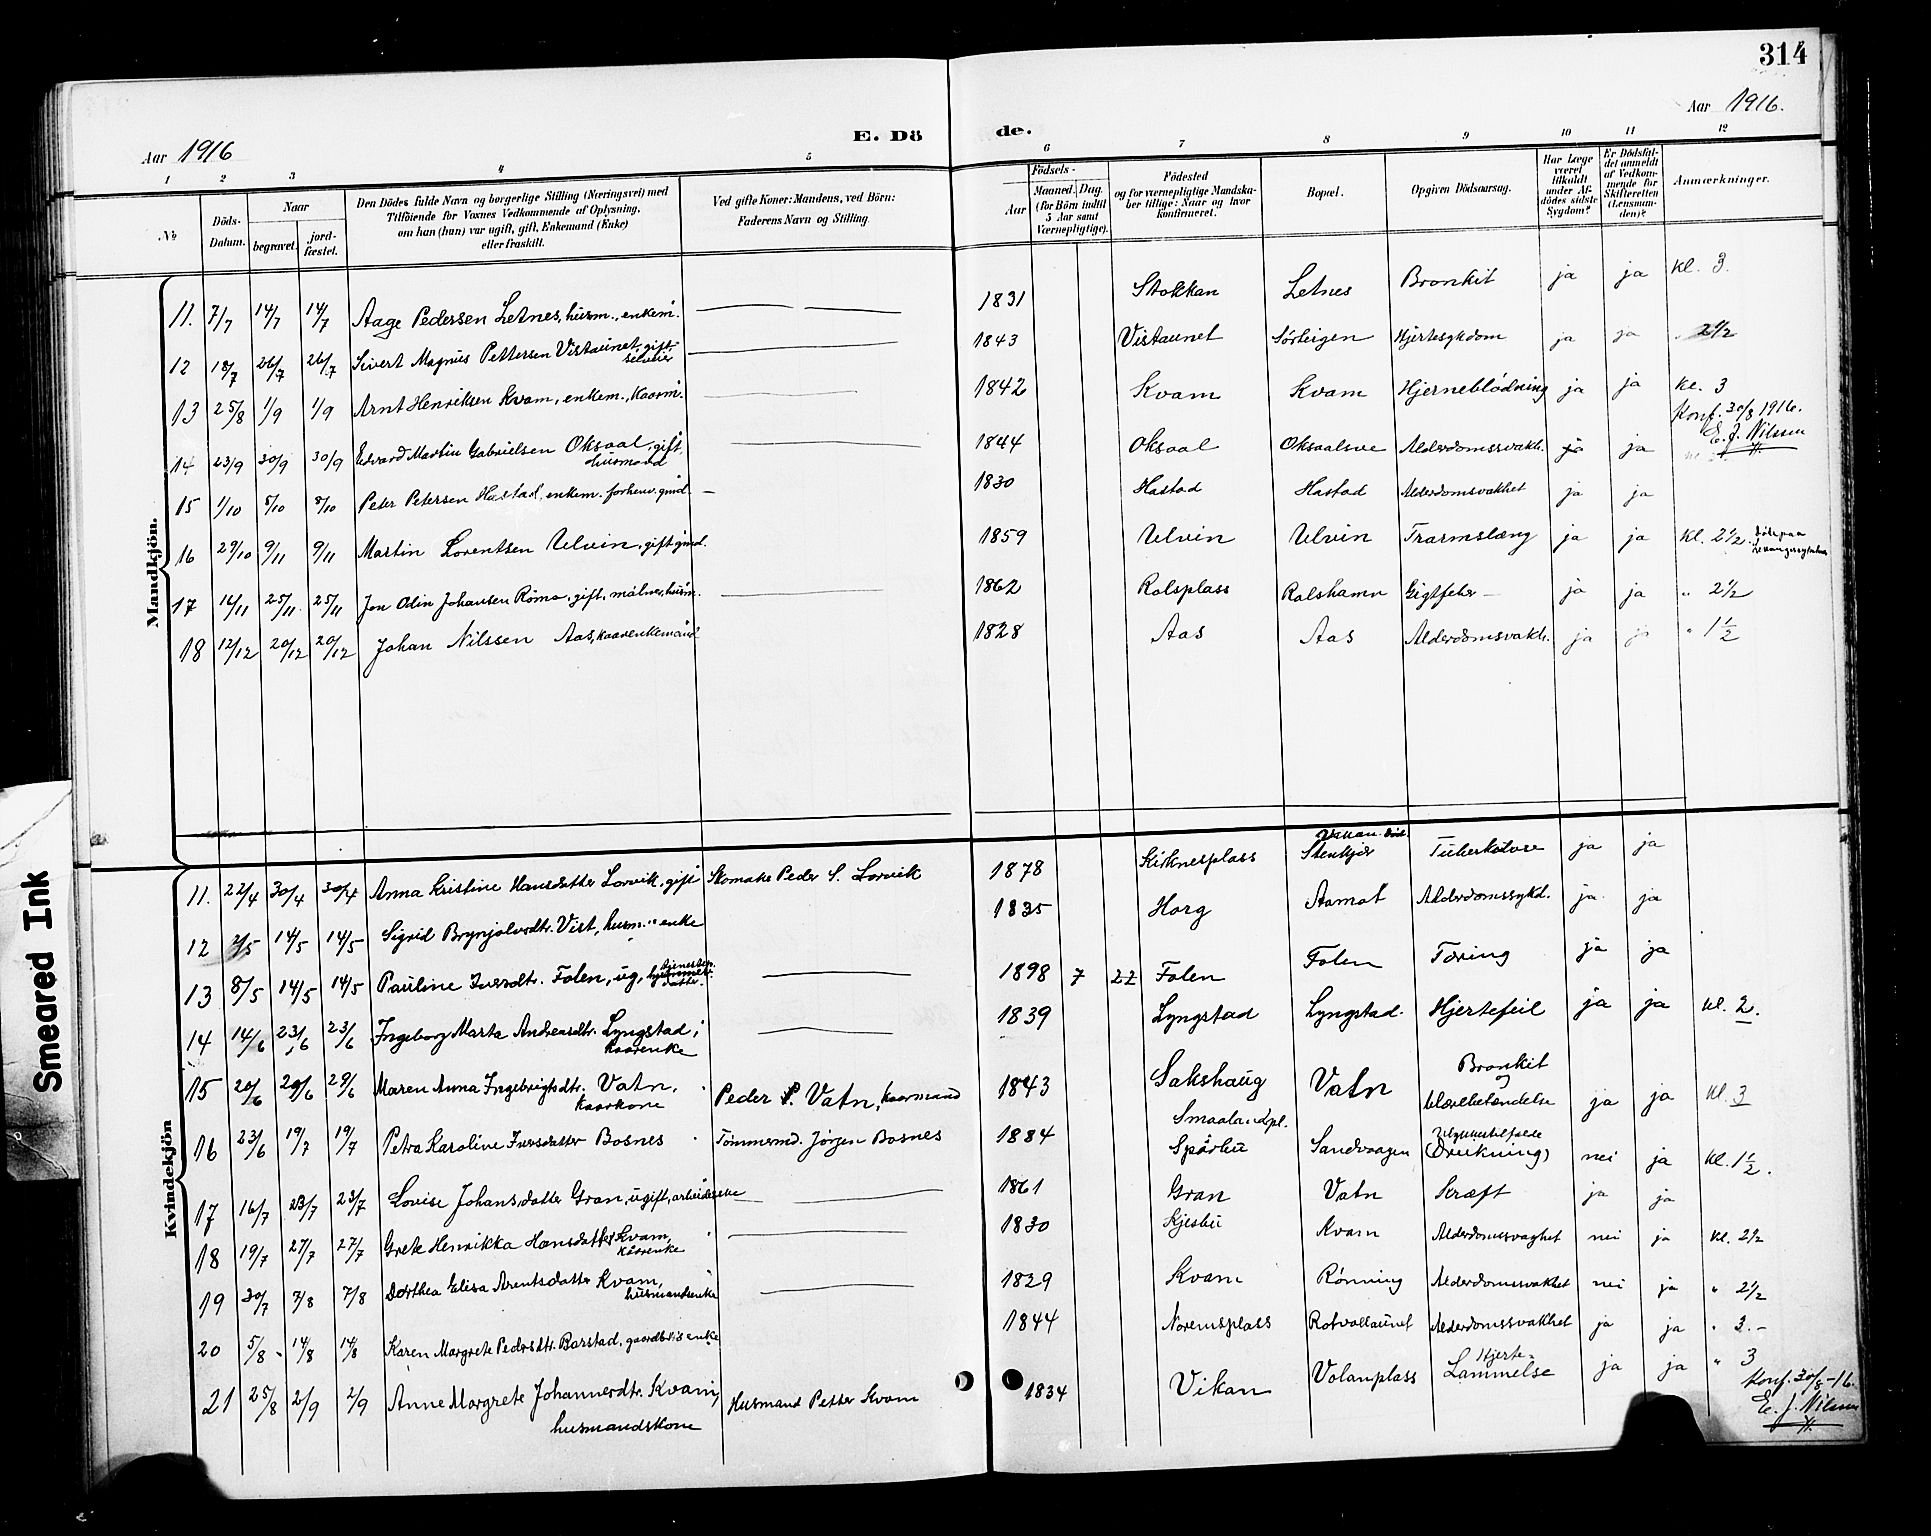 314
Aar 1916 E. Dö de. Aar 1916.
1 2 3 4 5 6 7 8 9 10 11 12
No Döds-Datum. Naar begravet. jord-fæstet. Den Dödes fulde Navn og borgerlige Stilling (Næringsvei) med Tilföiende for Voxnes Vedkommende af Oplysning, om han (hun) var ugift, gift, Enkemand (Enke) eller fraskilt. Ved gifte Koner: Mandens, ved Börn: Faderens Navn og Stilling. Födsels- Aar Maaned. Dag. (for Börn indtil 5 Aar samt Værnepligtige). Födested og for værnepligtige Mandskaber tillige: Naar og hvor konfirmeret. Bopæl. Opgiven Dödsaarsag. Har Læge været tilkaldt under Afdödes sidste Sygdom? Er Dödsfaldet anmeldt af Vedkommende for Skifteretten (Lensmanden)? Anmærkninger.
Mandkjön.
11. 7/7 14/7 14/7 Aage Pedersen Letnes, husm., enkem. 1831 Stokkan Letnes Bronkit ja ja Kl. 3.
12 18/7 26/7 26/7 Sivert Magnus Pettersen Vistaunet, gift selveier 1843 Vistaunet Sørleigen Hjertesykdom ja ja " 2 1/2
13 25/8 1/9 1/9 Arnt Henriksen Kvam, enkem., kaarm. 1842 Kvam Kvam Hjerneblödning ja ja Kl. 3
Konf. 30/8 1916.
E. J. Nilssen
14 23/9 30/9 30/9 Edvard Martin Gabrielsen Oksaal, gift, husmand 1844 Oksaal Oksaalsve Alderdomssvakh. ja ja
15 1/10 8/10 8/10 Peter Petersen Hastad, enkem. forhenv. gmd. 1830 Hastad Hastad Alderdomsvakhet ja ja
16 29/10 9/11 9/11 Martin Lorentsen Ulvin, gift gmd. 1859 Ulvin Ulvin Tramslæng ja ja Kl. 2 1/2.
17 16/11 25/11 25/11 Jon Odin Johansen Römo, gift, maler, husm. 1862 Rolsplass Rolshamn Gigtfeber ja ja " 2 1/2
18 12/12 20/12 20/12 Johan Nilssen Aas, kaarenkemand 1828 Aas Aas Alderdomsvakh. ja ja " 1 1/2
Kvindekjön
11. 22/4 30/4 30/4 Anna Kristine Hansdatter Lorvik, gift Skomaker Peder S. Lorvik 1878 Kirknesplass Stenkjær Tuberkulose ja ja
12 7/5 14/5 14/5 Sigrid Brynjolvsdtr. Vist, husm. enke 1835 Horg Aamot Alderdomssykd. ja ja
13 8/5 14/5 14/5 Pauline Iversdtr. Folen, ug. 1898 7 22 Folen Folen Tæring ja ja
14 14/6 23/6 23/6 Ingeborg Marta Andreasdtr. Lyngstad; kaarenke 1839 Lyngstad Lyngstad Hjertefeil ja ja Kl. 2.
15 20/6 29/6 29/6 Maren Anna Ingebrigtsdtr. Vatn, kaarkone Peder P. Vatn, kaarmand 1843 Sakshaug Vatn Bronkit og blærebetændelse ja ja Kl. 3
16 23/6 19/7 19/7 Petra Karoline Iversdatter Bosnes Tömmermd. Jørgen Bosnes 1884 Smaaland.pl. Sparbu Sandvaagen Ulykkestilfælde (Drukning) nei ja Kl. 1 1/2.
17 16/7 23/7 23/7 Lovise Johansdatter Gran, ugift, arbeiderske 1861 Gran Vatn Kræft ja ja
18 19/7 27/7 27/7 Grete Henrikka Hansdatter Kvam, kaarenke 1830 Kjesbu Kvam Alderdomssvaghet nei ja Kl. 2 1/2
19 30/7 7/8 7/8 Dorthea Elisa Arentsdatter Kvam, husmandsenke 1829 Kvam Rönning Alderdomssvakhet nei ja " 2 1/2
20 5/8 14/8 14/8 Karen Margrete Pedersdtr. Barstad, gaardbr's enke 1844 Noremsplass Rotvollaunet Alderdomssvakhet ja ja " 3.-
21 25/8 2/9 2/9 Anne Margrete Johannesdtr. Kvam, husmandskone Husmand Petter Kvam 1834 Vikan Volanplass Hjerte-Lammelse ja ja " 3
Konf. 30/8-16.
E. J. Nilssen
Smeared Ink